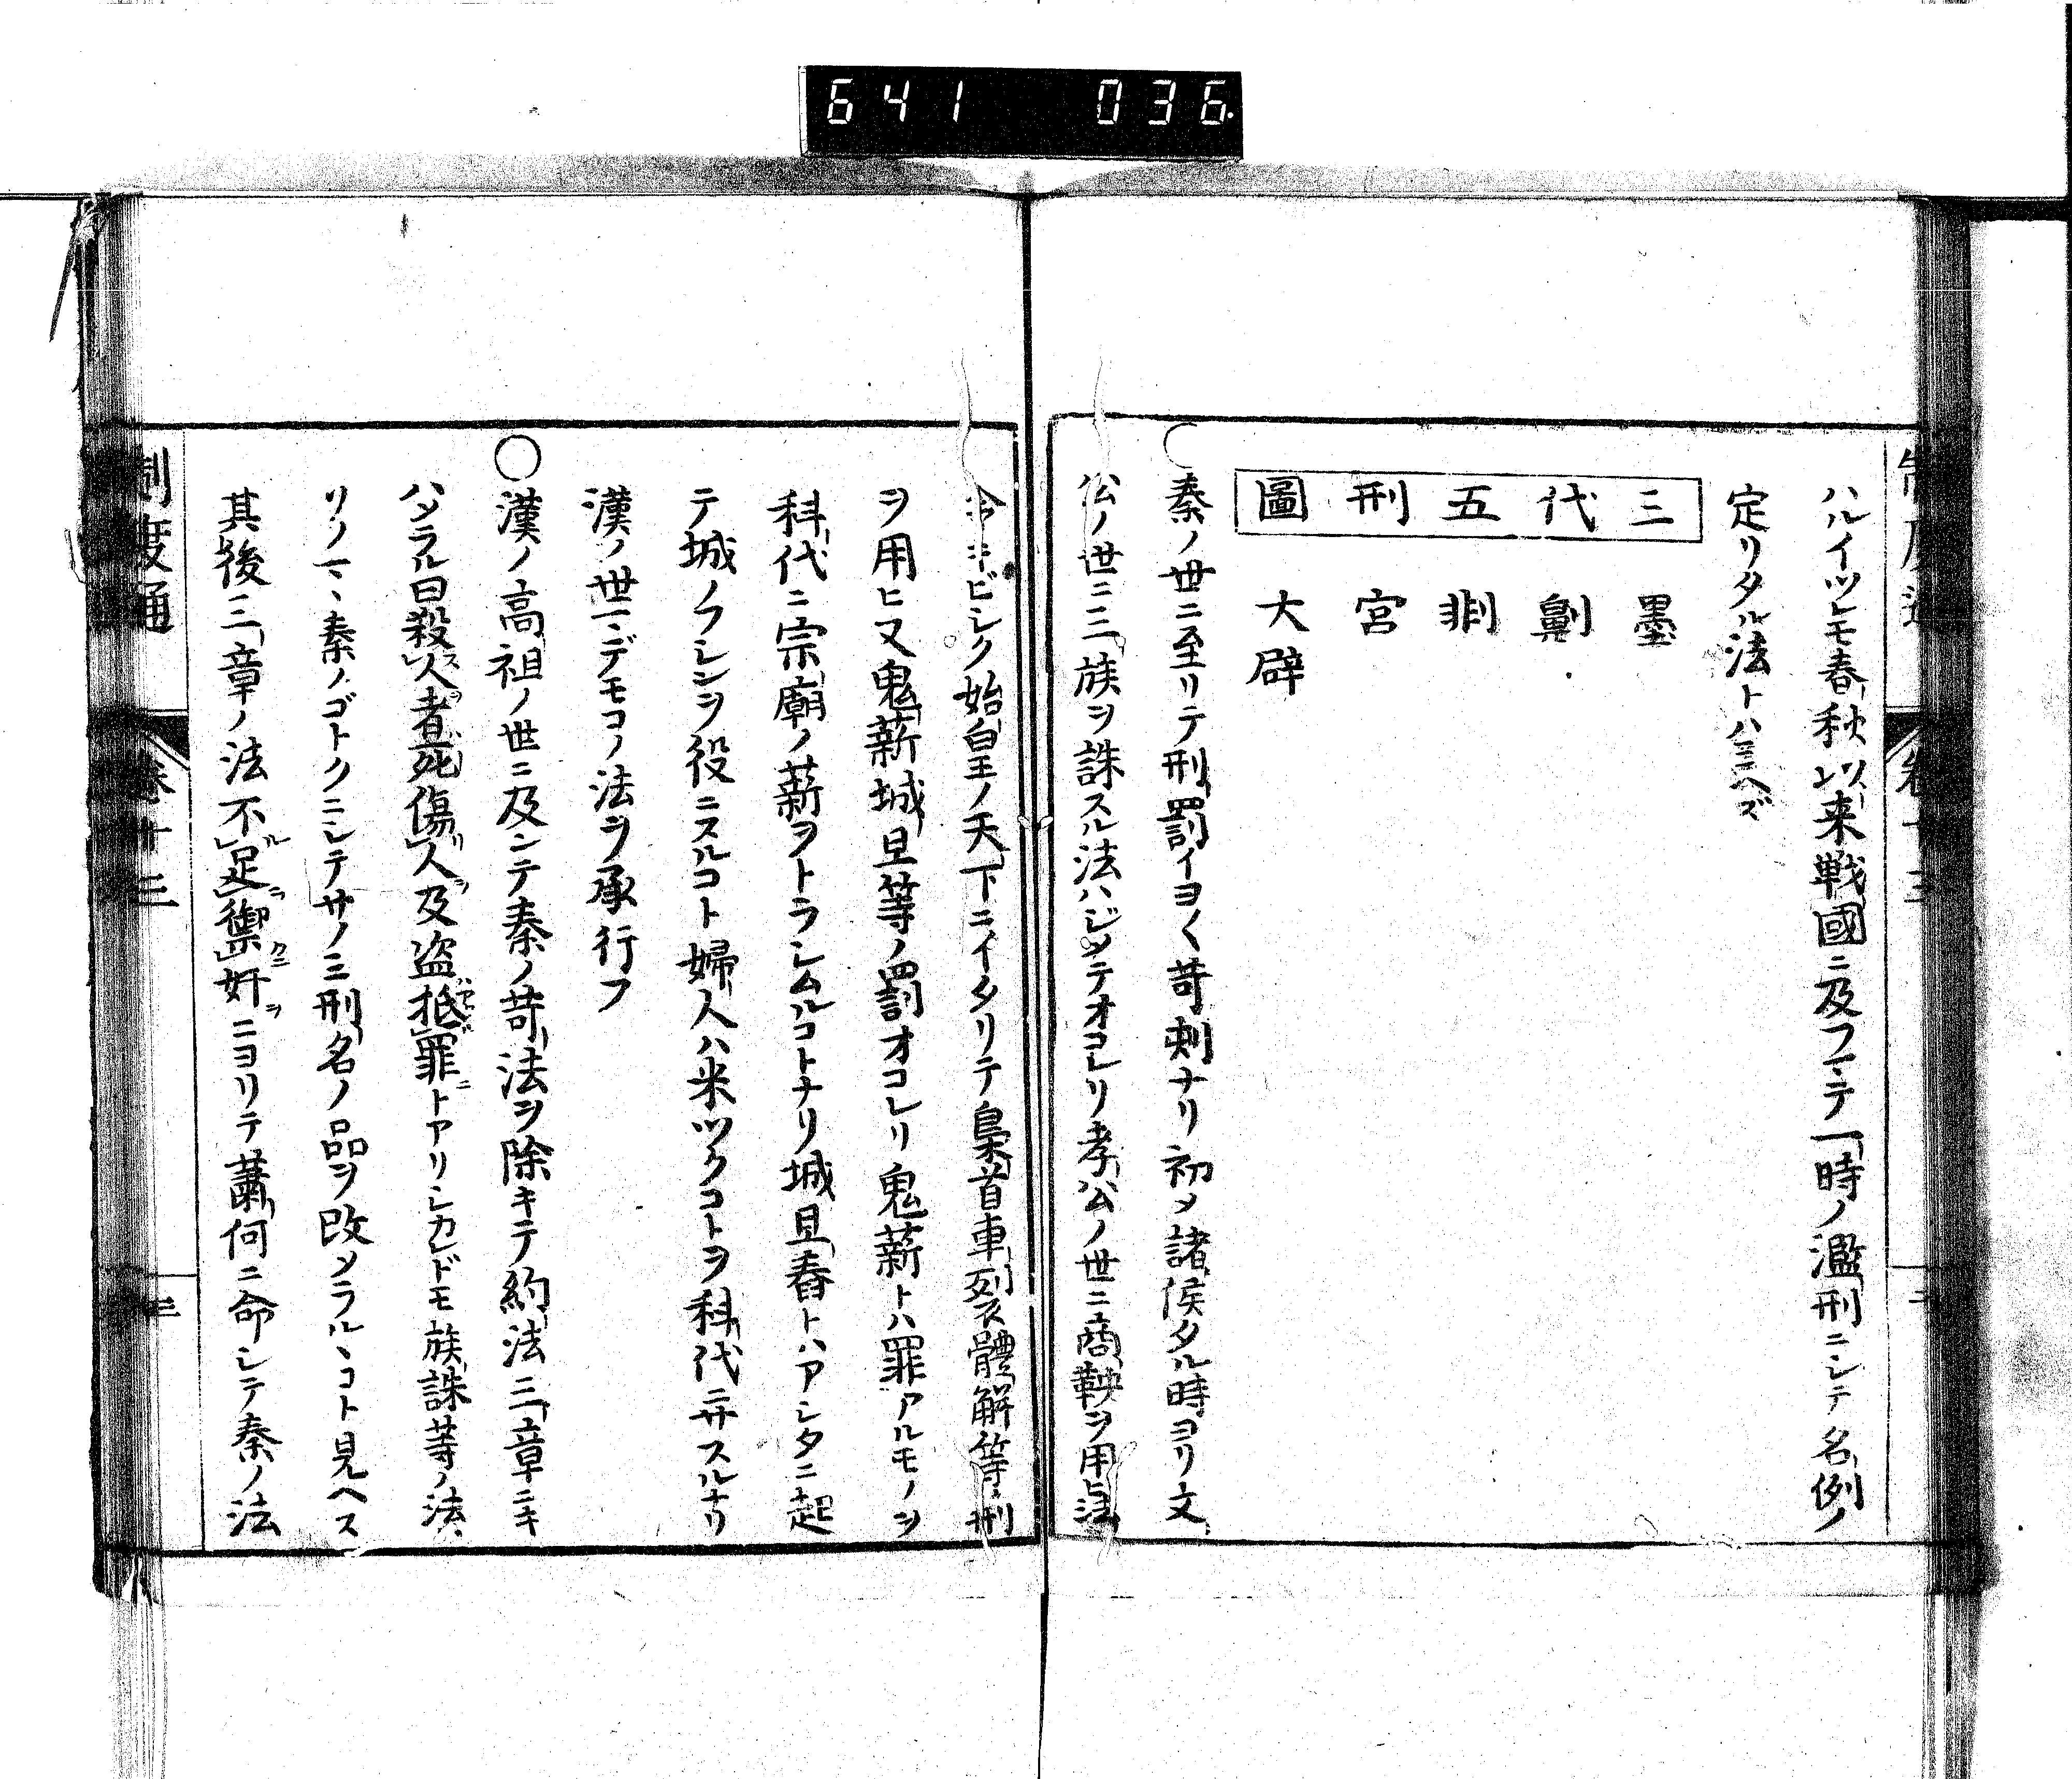 641 036
ハルイツレモ春秋以来戦國ニ及フマテ一時ノ濫刑ニシテ名例ノ
定リタル法トハミヘズ
三代五刑圖
墨
劓
剕
宮
大辟
○秦ノ世ニ至リテ刑罰イヨ〱苛刻ナリ初メ諸侯タル時ヨリ文
公ノ世ニ三族ヲ誅スル法ハジメテオコレリ孝公ノ世ニ商鞅ヲ用法
令キビシク始皇ノ天下ニイタリテ梟首車裂體解等ノ刑
ヲ用ヒ又鬼薪城旦等ノ罰オコレリ鬼薪トハ罪アルモノヲ
科代ニ宗廟ノ薪ヲトラシムルコトナリ城旦舂トハアシタニ起
テ城ノフシンヲ役ニスルコト婦人ハ米ツクコトヲ科代ニサスルナリ
漢ノ世マデモコノ法ヲ承行フ
○漢ノ高祖ノ世ニ及ンテ秦ノ苛法ヲ除キテ約法三章ニキ
ハメラル曰殺人者死傷人及盗抵罪トアリシカドモ族誅等ノ法ハ
リノマヽ秦ノゴトクニシテサノミ刑名ノ品ヲ改メラルヽコト見ヘス
其後三章ノ法不足禦奸ニヨリテ蕭何ニ命シテ秦ノ法
制度通 卷十三 三